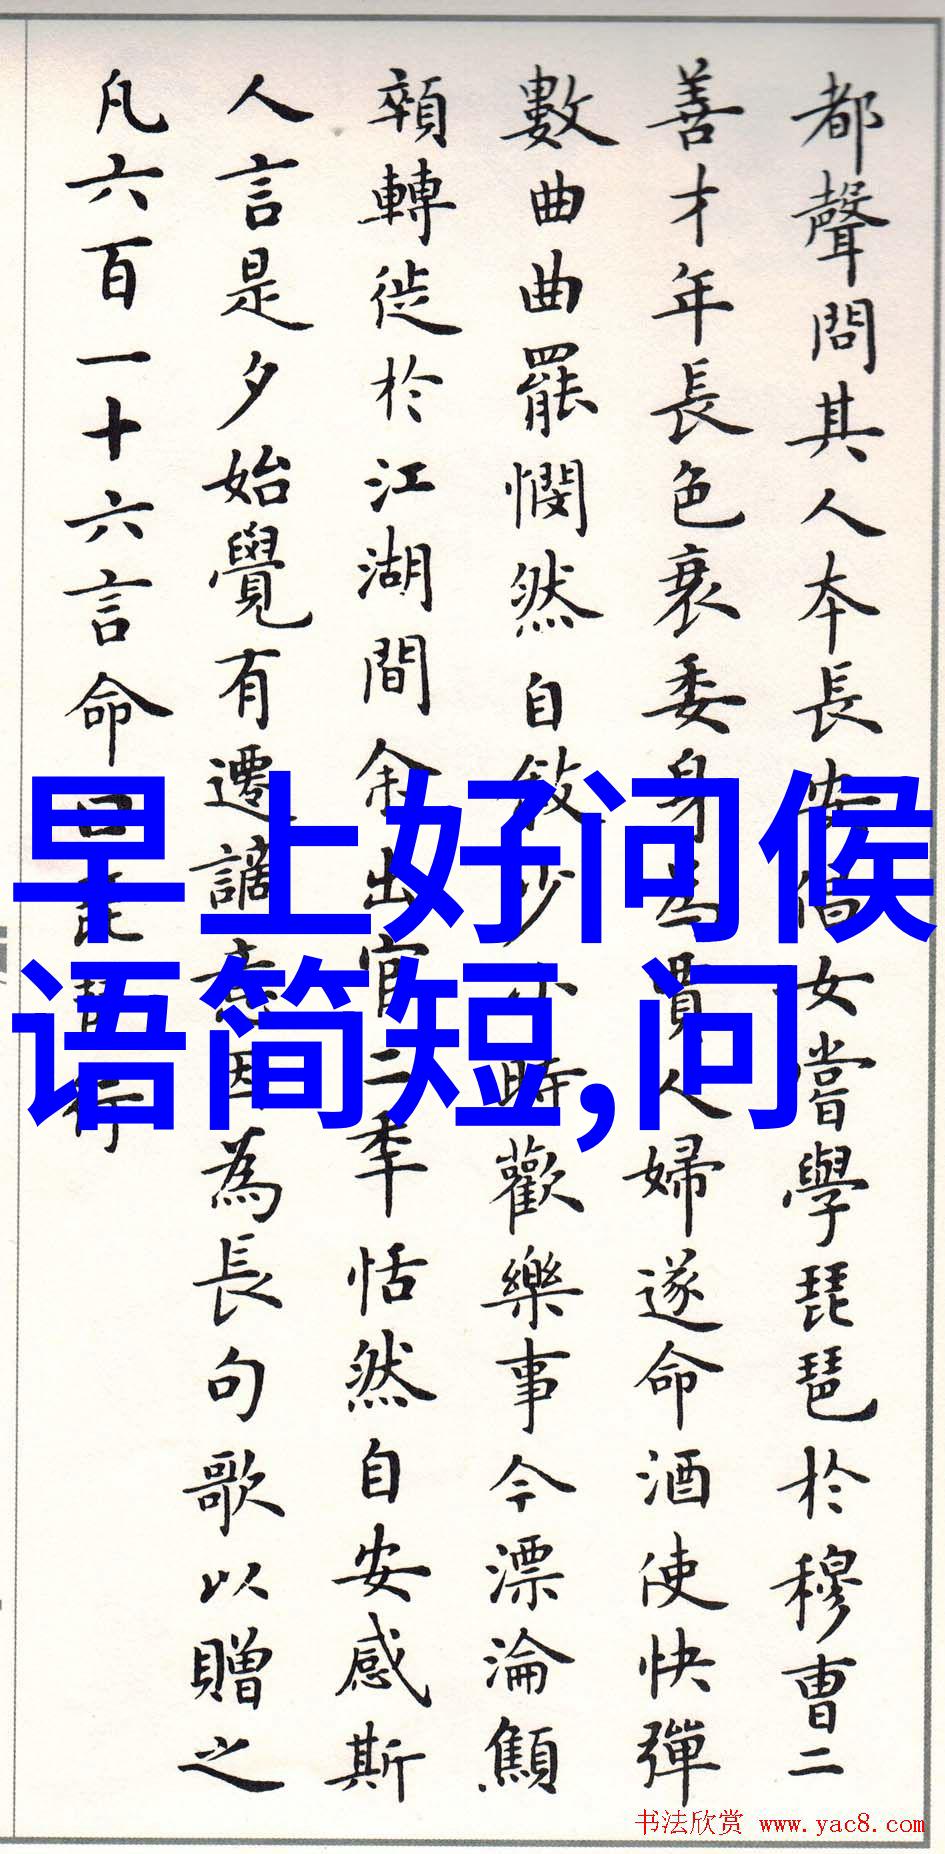 都聲問其人本長安倡女嘗學琵琶於穆曹二
善才年長色衰委身為賈人婦遂命酒使快彈
數曲曲罷憫然自敘少小時歡樂事今漂淪顦
顇轉徙於江湖間余出官二秊恬然自安感斯
人言是夕始覺有遷謫意因為長句歌以贈之
凡六百一十六言命曰琵琶行
早上好问候
语简短,问
书法欣赏 www.yac8.com